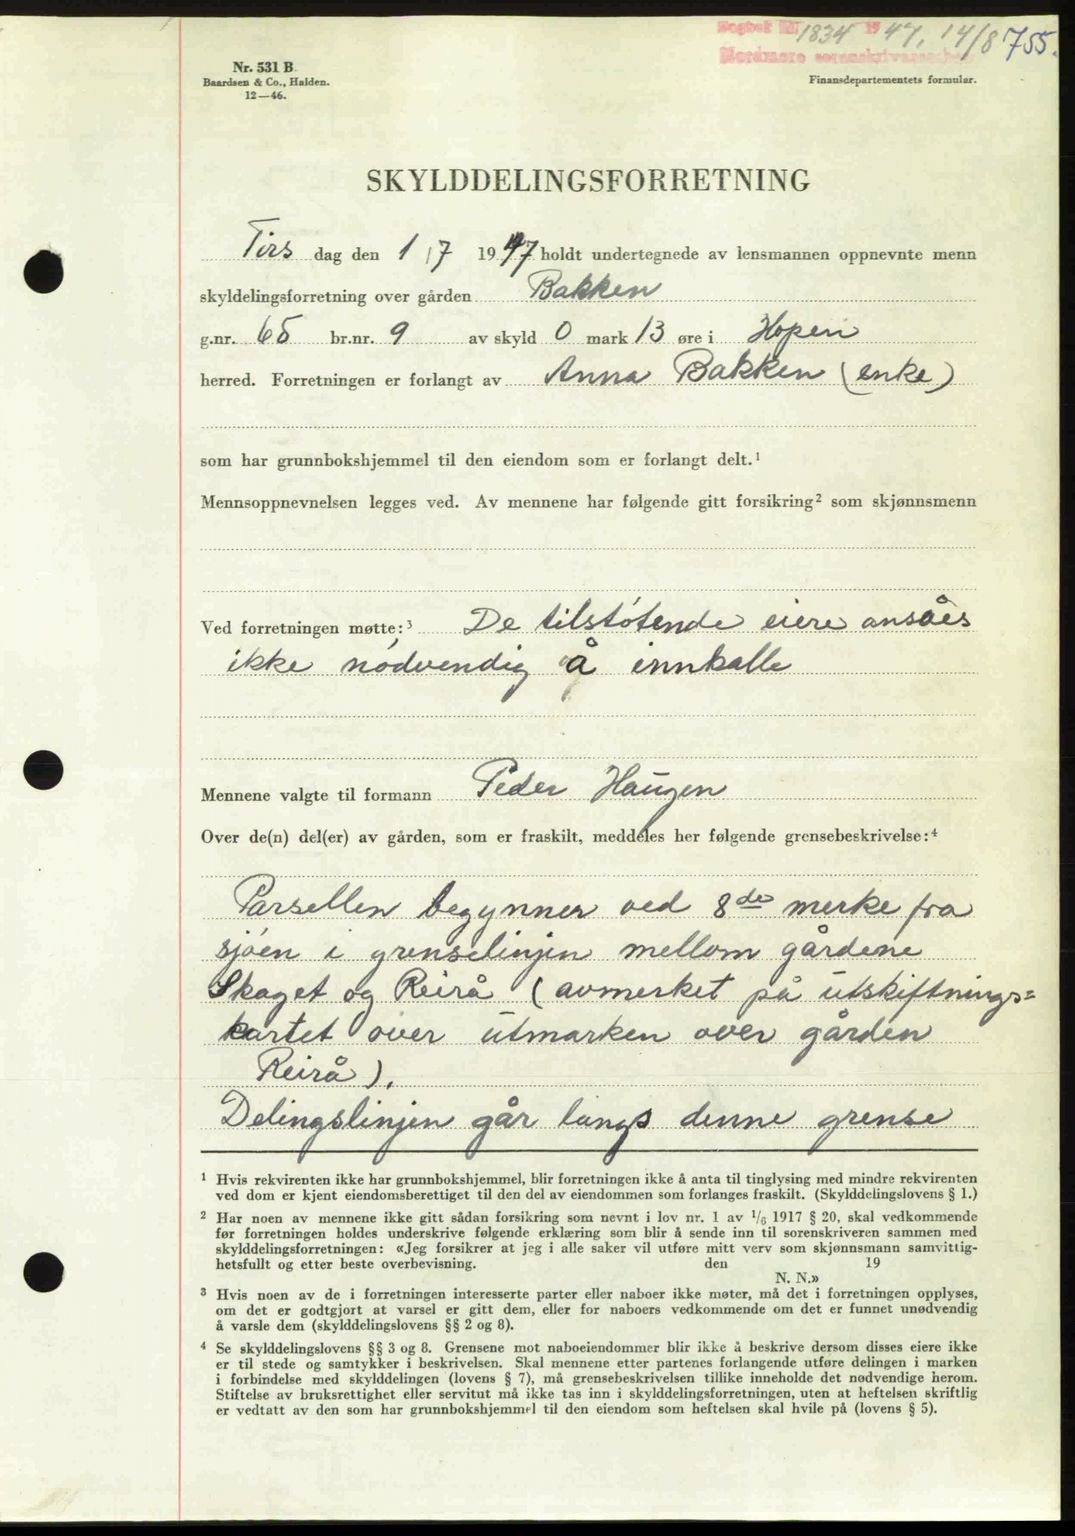 Dagbok Nr. 1834 1947, 14/8 755.
Nordmøre sorenskriverembete
Nr. 531 B
Baardsen & Co., Halden.
12—46.
Finansdepartementets formular.
SKYLDDELINGSFORRETNING
Tirs dag den 1/7 1947 holdt undertegnede av lensmannen oppnevnte menn
skyldelingsforretning over gården Bakken
g.nr. 65 br.nr. 9 av skyld 0 mark 13 øre i Hopen
herred. Forretningen er forlangt av Anna Bakken (enke)
som har grunnbokshjemmel til den eiendom som er forlangt delt.¹
Mennsoppnevnelsen legges ved. Av mennene har følgende gitt forsikring² som skjønnsmenn
Ved forretningen møtte:³ De tilstøtende eiere ansåes
ikke nødvendig å innkalle
Mennene valgte til formann Peder Haugen
Over de(n) del(er) av gården, som er fraskilt, meddeles her følgende grensebeskrivelse:⁴
Parsellen begynner ved 8de merke fra
sjøen i grenselinjen mellom gårdene
Skaget og Reirå (avmerket på utskiftnings=
kartet over utmarken over gården
Reirå).
Delingslinjen går langs denne grense
¹ Hvis rekvirenten ikke har grunnbokshjemmel, blir forretningen ikke å anta til tinglysing med mindre rekvirenten
ved dom er kjent eiendomsberettiget til den del av eiendommen som forlanges fraskilt. (Skylddelingslovens § 1.)
² Har noen av mennene ikke gitt sådan forsikring som nevnt i lov nr. 1 av 1/6 1917 § 20, skal vedkommende
før forretningen holdes underskrive følgende erklæring som blir å sende inn til sorenskriveren sammen med
skylddelingsforretningen: «Jeg forsikrer at jeg i alle saker vil utføre mitt verv som skjønnsmann samvittig-
hetsfullt og etter beste overbevisning. den 19
N. N.»
³ Hvis noen av de i forretningen interesserte parter eller naboer ikke møter, må det i forretningen opplyses,
om det er godtgjort at varsel er gitt dem, eller for naboers vedkommende om det er funnet unødvendig
å varsle dem (skylddelingslovens §§ 2 og 8).
⁴ Se skylddelingslovens §§ 3 og 8. Grensene mot naboeiendommer blir ikke å beskrive dersom disses eiere ikke
er til stede og samtykker i beskrivelsen. Skal mennene etter partenes forlangende utføre delingen i marken
i forbindelse med skylddelingen (lovens § 7), må grensebeskrivelsen tillike inneholde det nødvendige herom.
Stiftelse av bruksrettighet eller servitut må ikke tas inn i skylddelingsforretningen, uten at heftelsen skriftlig
er vedtatt av den som har grunnbokshjemmel til den eiendom som heftelsen skal hvile på (lovens § 5).